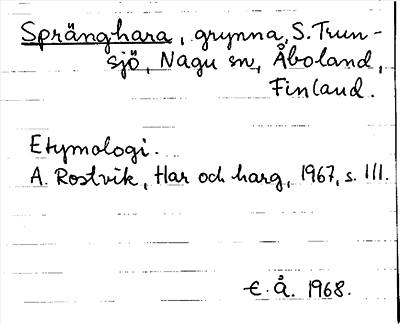 Spränghara, grynna, S. Trun-
sjö, Nagu sn, Åboland,
Finland.
Etymologi.
A. Rostvik, Har och harg, 1967, s. 111.
E. Å. 1968.